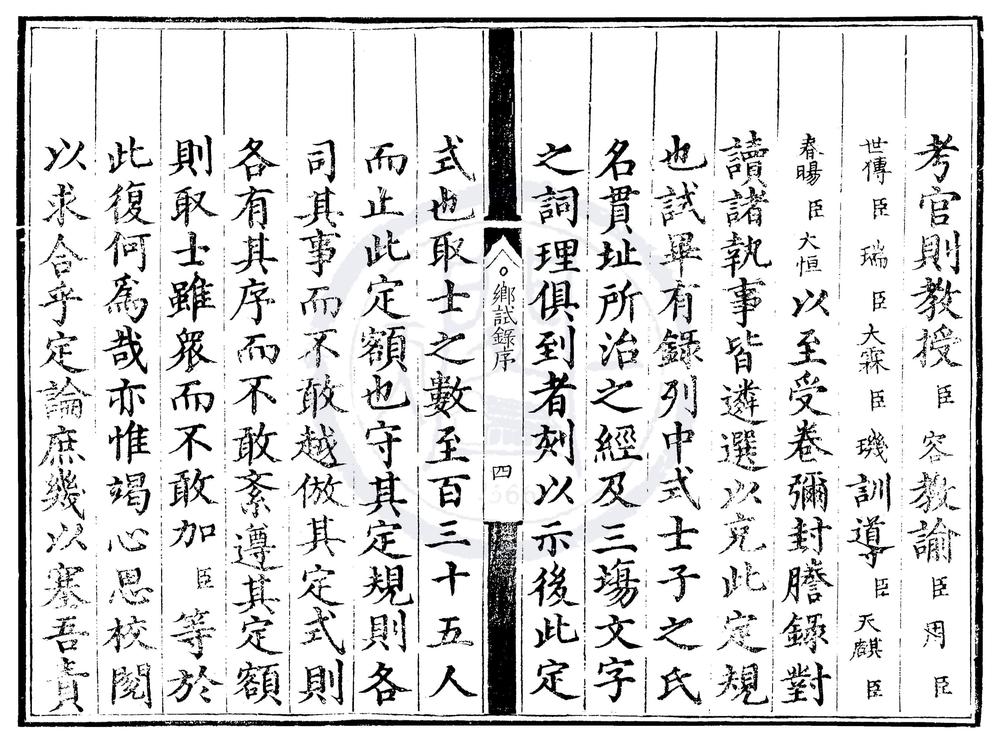 考官則教授臣容教諭臣周臣
世傳臣瑞臣大霖臣璣訓導臣天麒臣
春暘臣大恒以至受卷彌封謄錄對
讀諸執事皆遴選以充此定規
也試畢有錄列中式士子之氏
名貫址所治之經及三塲文字
之詞理俱到者刻以示後此定
鄉試錄序 四
式也取士之數至百三十五人
而止此定額也守其定規則各
司其事而不敢越倣其定式則
各有其序而不敢紊遵其定額
則取士雖衆而不敢加臣等於
此復何爲哉亦惟竭心思校閱
以求合乎定論庶幾以塞吾責